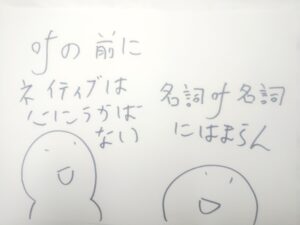 ofの前に
ネイティブは
心にうかば
ない
名詞 of 名詞
にはまらん